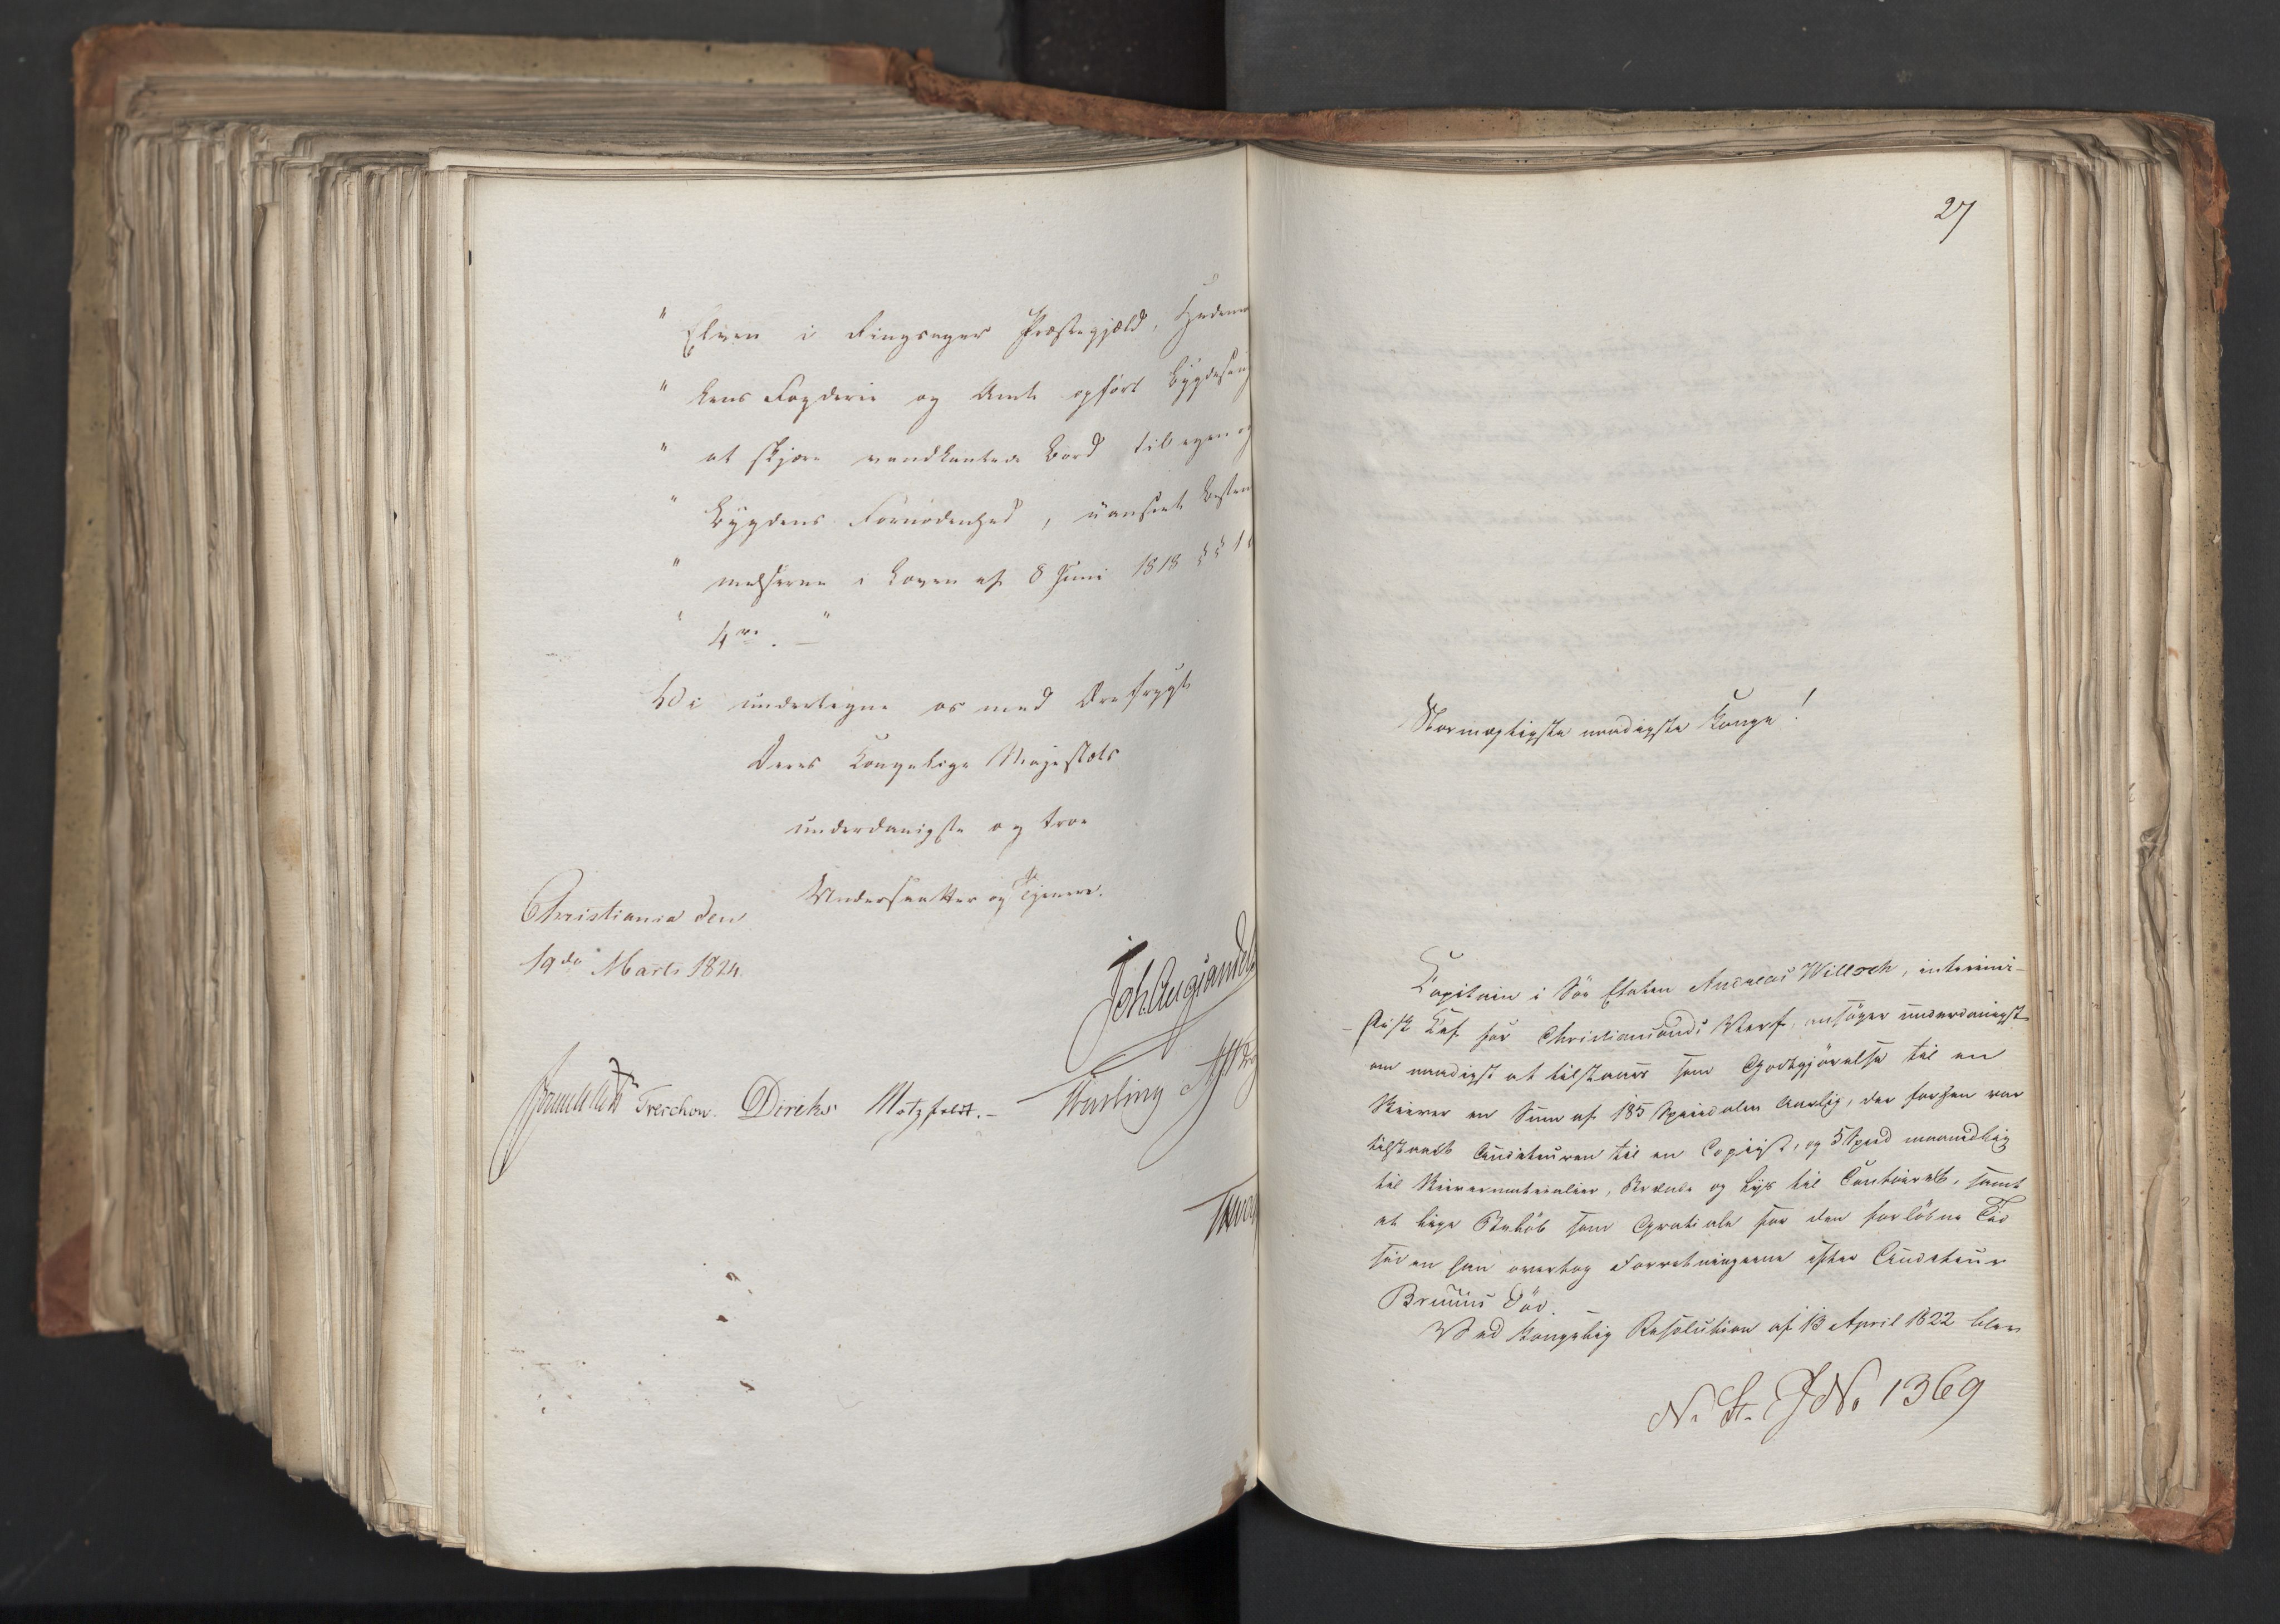 " Elven i Ringsager Præstegjæld, Hedema
" kens Fogderie og Amt opført Bygdesaug
" at skjære vandkantede Bord til egen og
" Bygdens Fornødenhed, uanseet Bestem
" melserne i Loven af 8 Juni 1818 §§ 1 
" 4re. — "
Vi undertegne os med Ærefrygt
Deres Kongelige Majestæts
underdanigste og troe
Undersaatter og Tjenere.
Christiania den
19de Marts 1824.
Joh. Aug. Sandels
Sommerhielm Treschow. Diriks Motzfeldt. Fasting
27
Stormægtigste naadigste Konge!
Capitain i Søe Etaten Andreas Willoch, interimi-
stisk Chef for Christiansands Værf, ansøger underdanigst
om naadigst at tilstaaes som Godtgjørelse til en
Skriver en Sum af 185 Speciedaler Aarlig, der forhen var
tilstaaet Auditeuren til en Copiist, og 5 Spd maanedlig
til Skrivermaterialier, Brænde og Lys til Contoiret, samt
et lige Beløb som Gratiale for den forløbne Tid
siden han overtog Forretningerne efter Auditeur
Bruuns Død. —
Ved Kongelig Resolution af 13 April 1822 blev
N. St. J No 1369